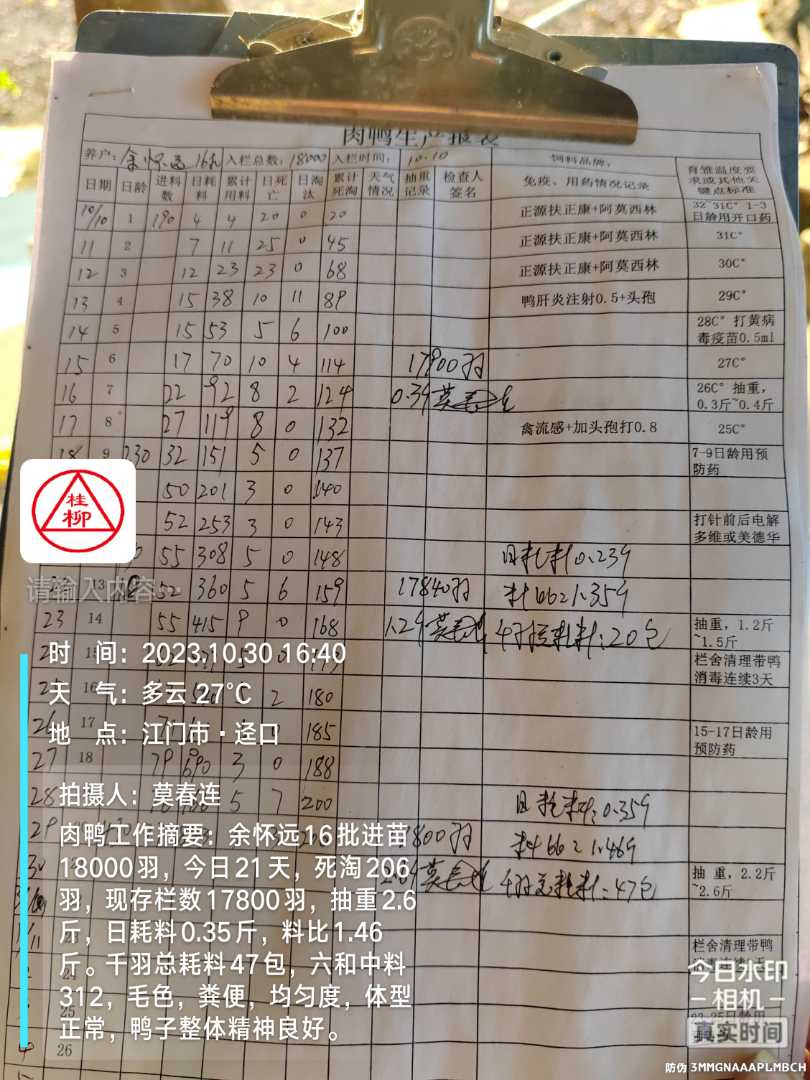 肉鸭生产报表
养户: 余怀远16批 入栏总数: 18000 入栏时间: 10.10 饲料品牌:
日期 日龄 进料数 日耗料 累计用料 日死亡 日淘汰 累计死淘 天气情况 抽重记录 检查人签名 免疫、用药情况记录 育雏温度要求或其他关键点标准
10/10 1 190 4 4 20 0 20 正源扶正康+阿莫西林 32~31C° 1-3日龄用开口药
11 2 7 11 25 0 45 正源扶正康+阿莫西林 31C°
12 3 12 23 23 0 68 正源扶正康+阿莫西林 30C°
13 4 15 38 10 11 89 鸭肝炎注射0.5+头孢 29C°
14 5 15 53 5 6 100 28C° 打黄病毒疫苗0.5ml
15 6 17 70 10 4 114 17900羽 27C°
16 7 22 92 8 2 124 0.39 莫春连 26C° 抽重，0.3斤~0.4斤
17 8 27 119 8 0 132 禽流感+加头孢打0.8 25C°
18 9 230 32 151 5 0 137 7-9日龄用预防药
50 201 3 0 140
52 253 3 0 143 打针前后电解多维或美德华
55 308 5 0 148 日耗料0.239
13 52 360 5 6 159 17840羽 料比1.359
23 14 55 415 9 0 168 1.29 莫春连 千羽总耗料:20包 抽重，1.2斤~1.5斤
15 栏舍清理带鸭消毒连续3天
16 2 180
26 17 185 15-17日龄用预防药
27 18 79 690 3 0 188
28 5 7 200 日耗料:0.359
29 1800羽 料比1.469
莫春连 千羽总耗料:47包 抽重，2.2斤~2.6斤
栏舍清理带鸭
24
25
26
桂柳
请输入内容
时 间: 2023.10.30 16:40
天 气: 多云 27℃
地 点: 江门市·迳口
拍摄人: 莫春连
肉鸭工作摘要: 余怀远16批进苗
18000羽，今日21天，死淘206
羽，现存栏数17800羽，抽重2.6
斤，日耗料0.35斤，料比1.46
斤。千羽总耗料47包，六和中料
312，毛色，粪便，均匀度，体型
正常，鸭子整体精神良好。
今日水印
相机
真实时间
防伪 3MMGNAAAPLMBCH